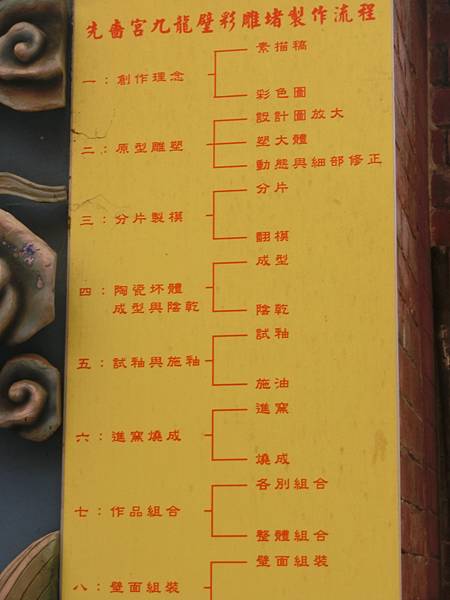 先嗇宮九龍壁彩雕堵製作流程
一：創作理念
素描稿
彩色圖
二：原型雕塑
設計圖放大
塑大體
動態與細部修正
三：分片製模
分片
翻模
四：陶瓷坏體
成型與陰乾
成型
陰乾
五：試釉與施釉
試釉
施油
六：進窯燒成
進窯
燒成
七：作品組合
各別組合
整體組合
八：壁面組裝
壁面組裝